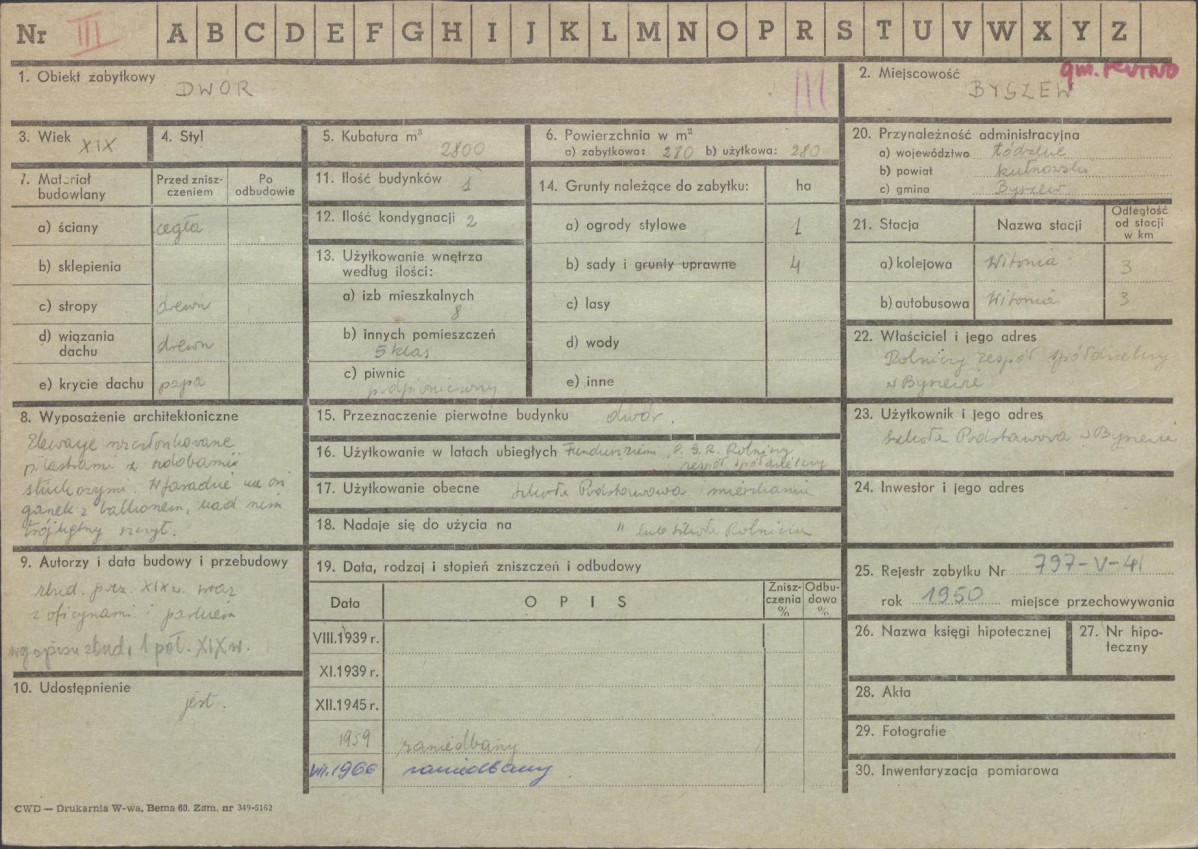 Nr III A B C D E F G H I J K L M N O P R S T U V W X Y Z
1. Obiekt zabytkowy
DWÓR
III
2. Miejscowość
gm. KUTNO
BYSZEW
3. Wiek XIX
4. Styl
5. Kubatura m³
2800
6. Powierzchnia w m²
a) zabytkowa: 280 b) użytkowa: 280
20. Przynależność administracyjna
a) województwo Łódzkie
b) powiat kutnowski
c) gmina Byszew
7. Materiał budowlany
Przed zniszczeniem
Po odbudowie
a) ściany cegła
b) sklepienia
c) stropy drewn
d) wiązania dachu drewn
e) krycie dachu papa
11. Ilość budynków 1
12. Ilość kondygnacji 2
13. Użytkowanie wnętrza
według ilości:
a) izb mieszkalnych
8
b) innych pomieszczeń
5 klas
c) piwnic
podpiwniczony
14. Grunty należące do zabytku: ha
a) ogrody stylowe 1
b) sady i grunty uprawne 4
c) lasy
d) wody
e) inne
21. Stacja
Nazwa stacji
Odległość
od stacji
w km
a) kolejowa Witonia 3
b) autobusowa Witonia 3
22. Właściciel i jego adres
Rolniczy zespół spółdzielczy
w Byszewie
8. Wyposażenie architektoniczne
Elewacje rozczłonkowane
pilastrami z ozdobami
stiukowymi. W fasadzie
ganek z balkonem, nad nim
trójkątny szczyt.
15. Przeznaczenie pierwotne budynku dwór.
16. Użytkowanie w latach ubiegłych P. G. R. Rolniczy
zespół spółdzielczy
17. Użytkowanie obecne Szkoła Podstawowa mieszkania
18. Nadaje się do użycia na " Szkoła Rolnicza
23. Użytkownik i jego adres
Szkoła Podstawowa w Byszewie
24. Inwestor i jego adres
9. Autorzy i data budowy i przebudowy
zbud. XIX w. wraz
z oficynami i parkiem
wg opisu zbud. 1 poł. XIX w.
10. Udostępnienie
jest.
19. Data, rodzaj i stopień zniszczeń i odbudowy
Data
O P I S
Zniszczenia %
Odbudowa %
VIII.1939 r.
XI.1939 r.
XII.1945 r.
1959 zaniedbany
VII.1966 zaniedbany
25. Rejestr zabytku Nr 797-V-41
rok 1950 miejsce przechowywania
26. Nazwa księgi hipotecznej
27. Nr hipoteczny
28. Akta
29. Fotografie
30. Inwentaryzacja pomiarowa
CWD — Drukarnia W-wa, Bema 60. Zam. nr 349-5162